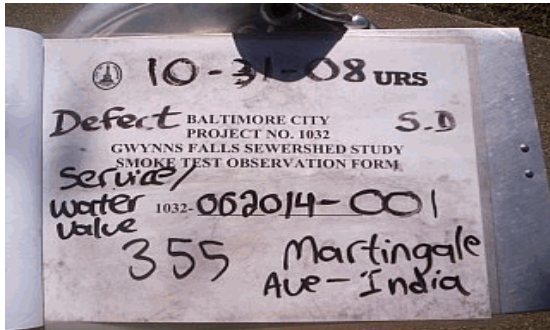 10-31-08 URS
Defect BALTIMORE CITY S.D
PROJECT NO. 1032
GWYNNS FALLS SEWERSHED STUDY
SMOKE TEST OBSERVATION FORM
Service/
water 1032-062014-001
Value
355 Martingale
Ave-India